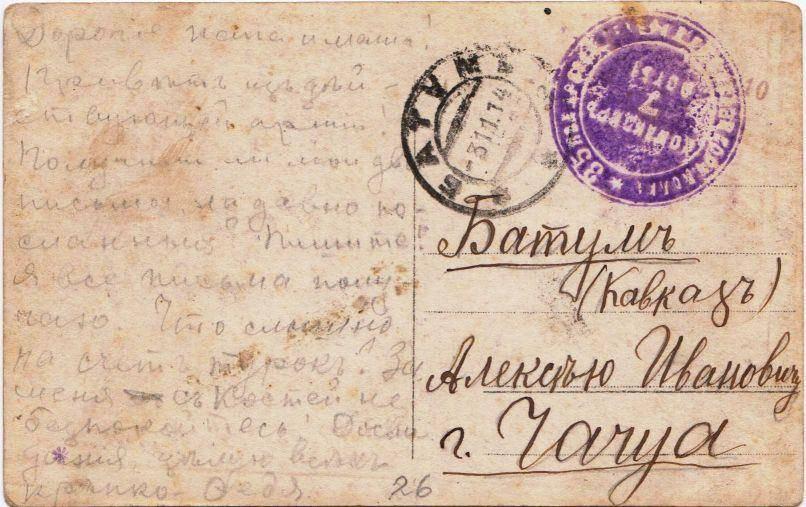 Дорогіе папа и мама!
Привѣтъ изъ дѣй-
ствующей арміи!
Получили ли мои два
письма, недавно по
сланныя? Пишите.
Я все письма полу
чаю. Что слышно
на счетъ турокъ? За
меня съ Костей не
безпокойтесь! До сви
данія, цѣлую всѣхъ
крѣпко. Федя
26
БАТУМЪ
-3.11.14
10
7
Батумъ
(Кавказъ)
Алексѣю Ивановичу
г. Чачуа